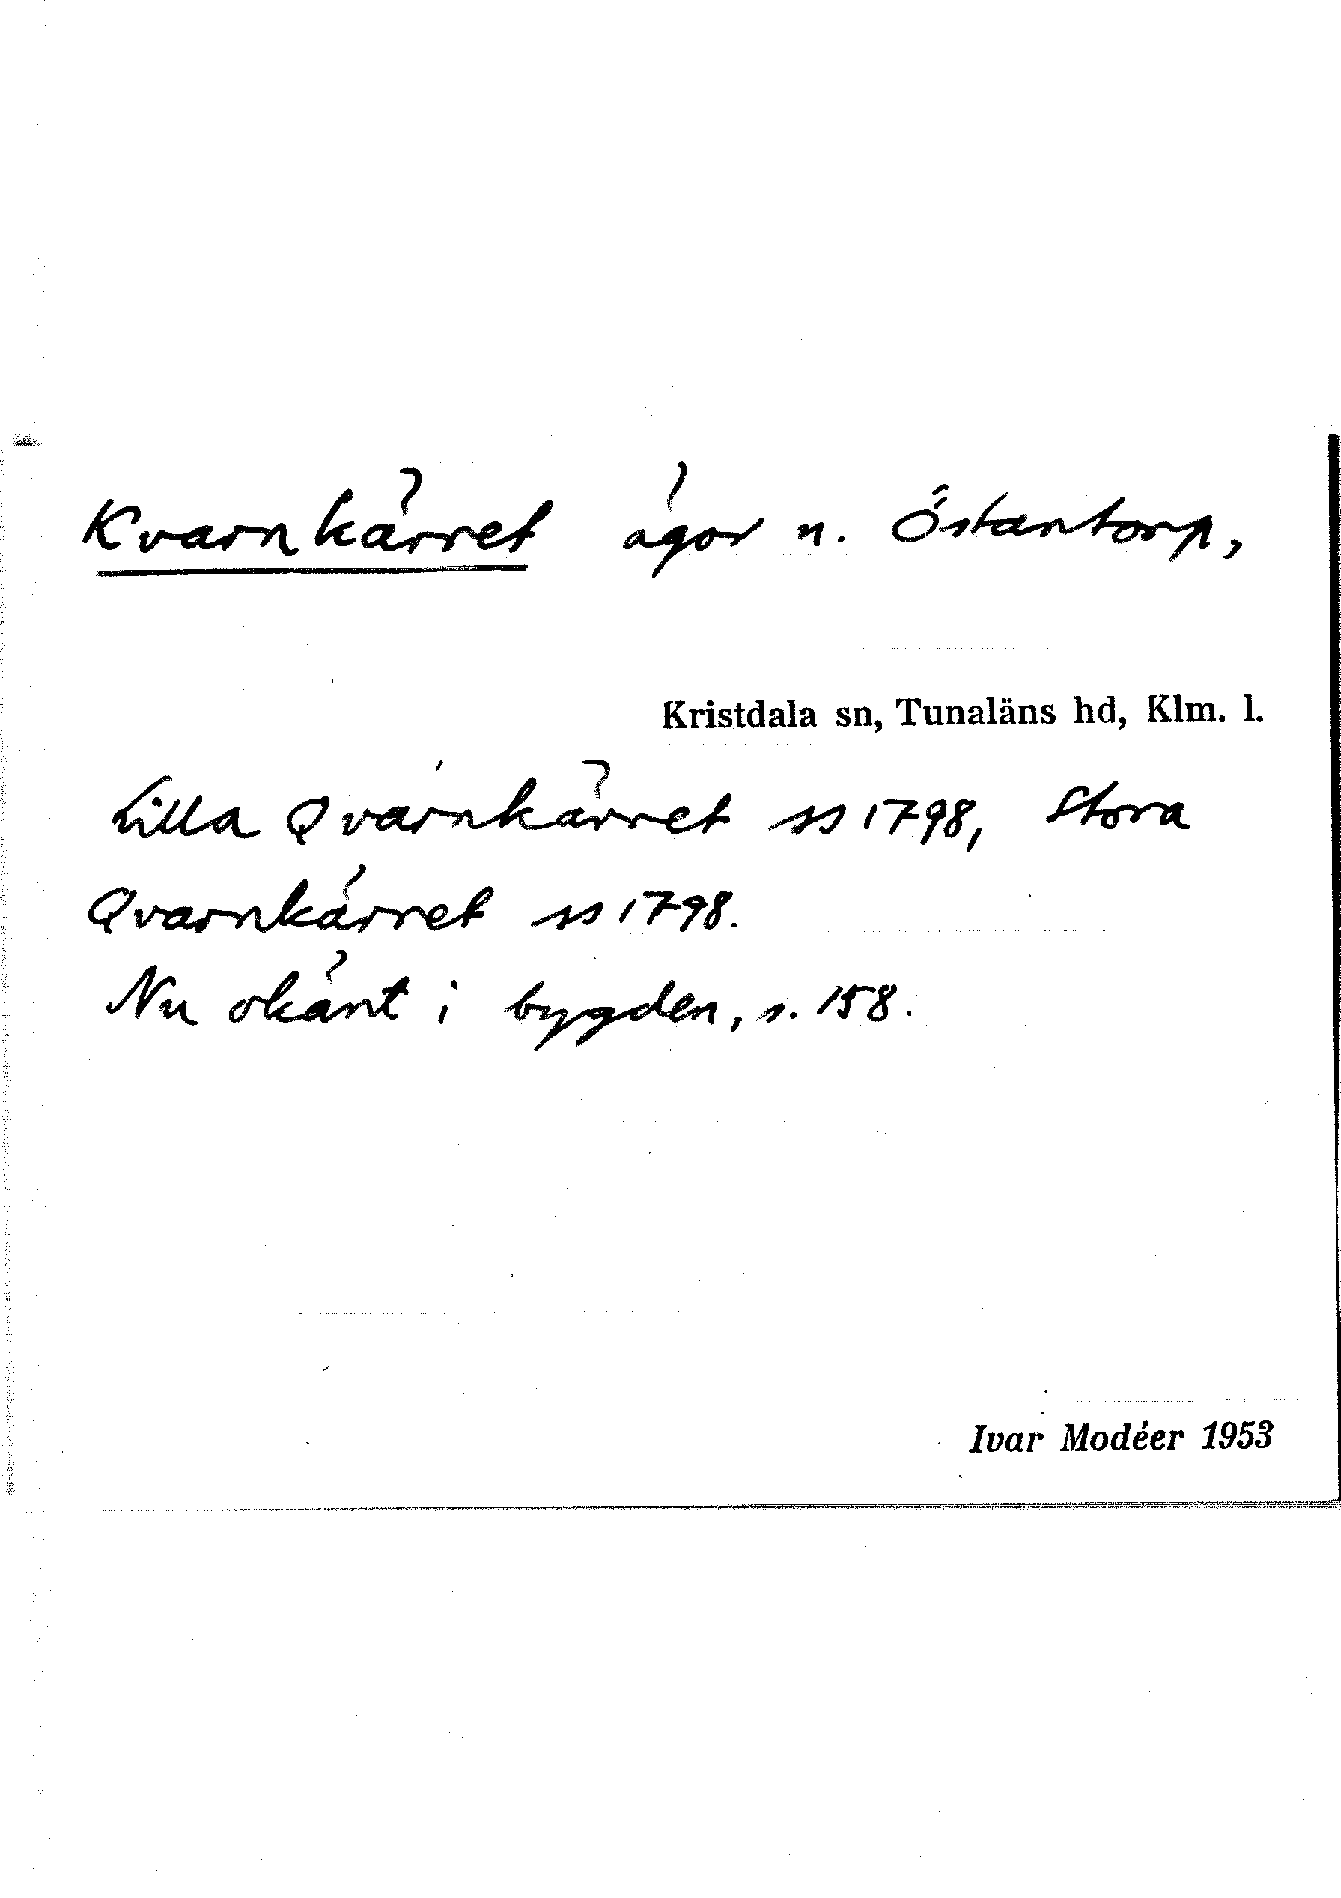 Kvarnkärret ägor n. Östantorp,
Kristdala sn, Tunaläns hd, Klm. l.
Lilla Qvarnkärret ss 1798, Stora
Qvarnkärret ss 1798.
Nu okänt i bygden, s. 158.
Ivar Modéer 1953